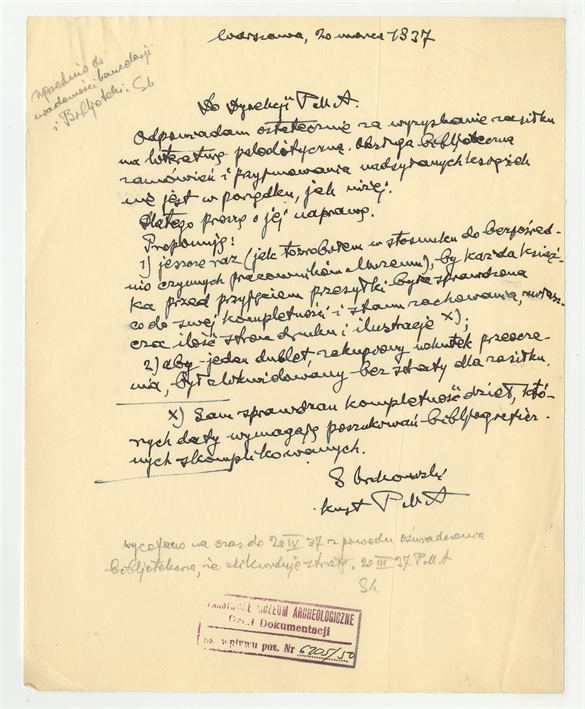 Warszawa, 20 marca 1937
uprzednio do
wiadomości kancelarji
i Bibljoteki. Sk
Do Dyrekcji P.M.A.
Odpowiadam ostatecznie za wyzyskanie zasiłku
na literaturę paleolityczną. Obsługa bibljoteczna
zamówień i przyjmowania nadsyłanych książek
nie jest w porządku, jak niżej.
Dlatego proszę o jej naprawę.
Proponuję:
1) jeszcze raz (jak to zrobiłem w stosunku do bezpośred-
nio czynnych pracowników Muzeum), by każda książ-
ka przed przyjęciem przesyłki była sprawdzona
co do swej kompletności i stanu zachowania, zwłasz-
cza ilość stron druku i ilustracje x);
2) aby jeden dublet, zakupiony wskutek przeocze-
nia, był zlikwidowany bez straty dla zasiłku.
x) Sam sprawdzam kompletność dzieł, któ-
rych daty wymagają poszukiwań bibljograficz-
nych skomplikowanych.
S Krukowski
kust P.M.A
wycofano na czas do 20 IV 37 z powodu oświadczenia
bibljotekarza, że zlikwiduje stratę. 20 III 37 P.M.A
Sk
PAŃSTWOWE MUZEUM ARCHEOLOGICZNE
Dział Dokumentacji
Ks. wpływu poz. Nr 6205/50